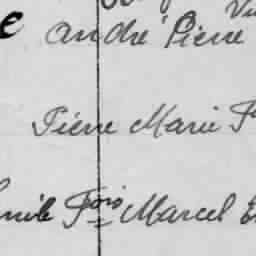 André Pierre
Pierre Marie F
Emile Fois Marcel E